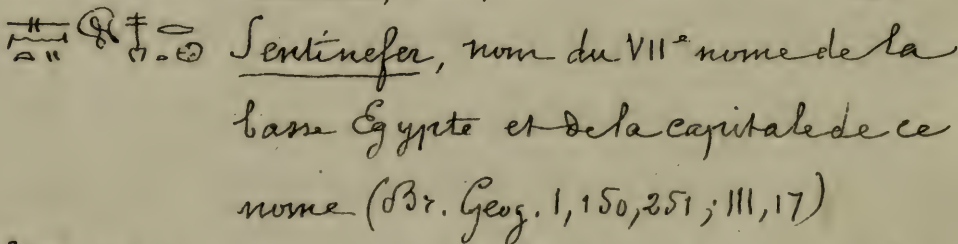 Sentinefer, nom du VIIe nome de la
basse Egypte et de la capitale de ce
nome (Br. Geog. I, 150, 251; III, 17)